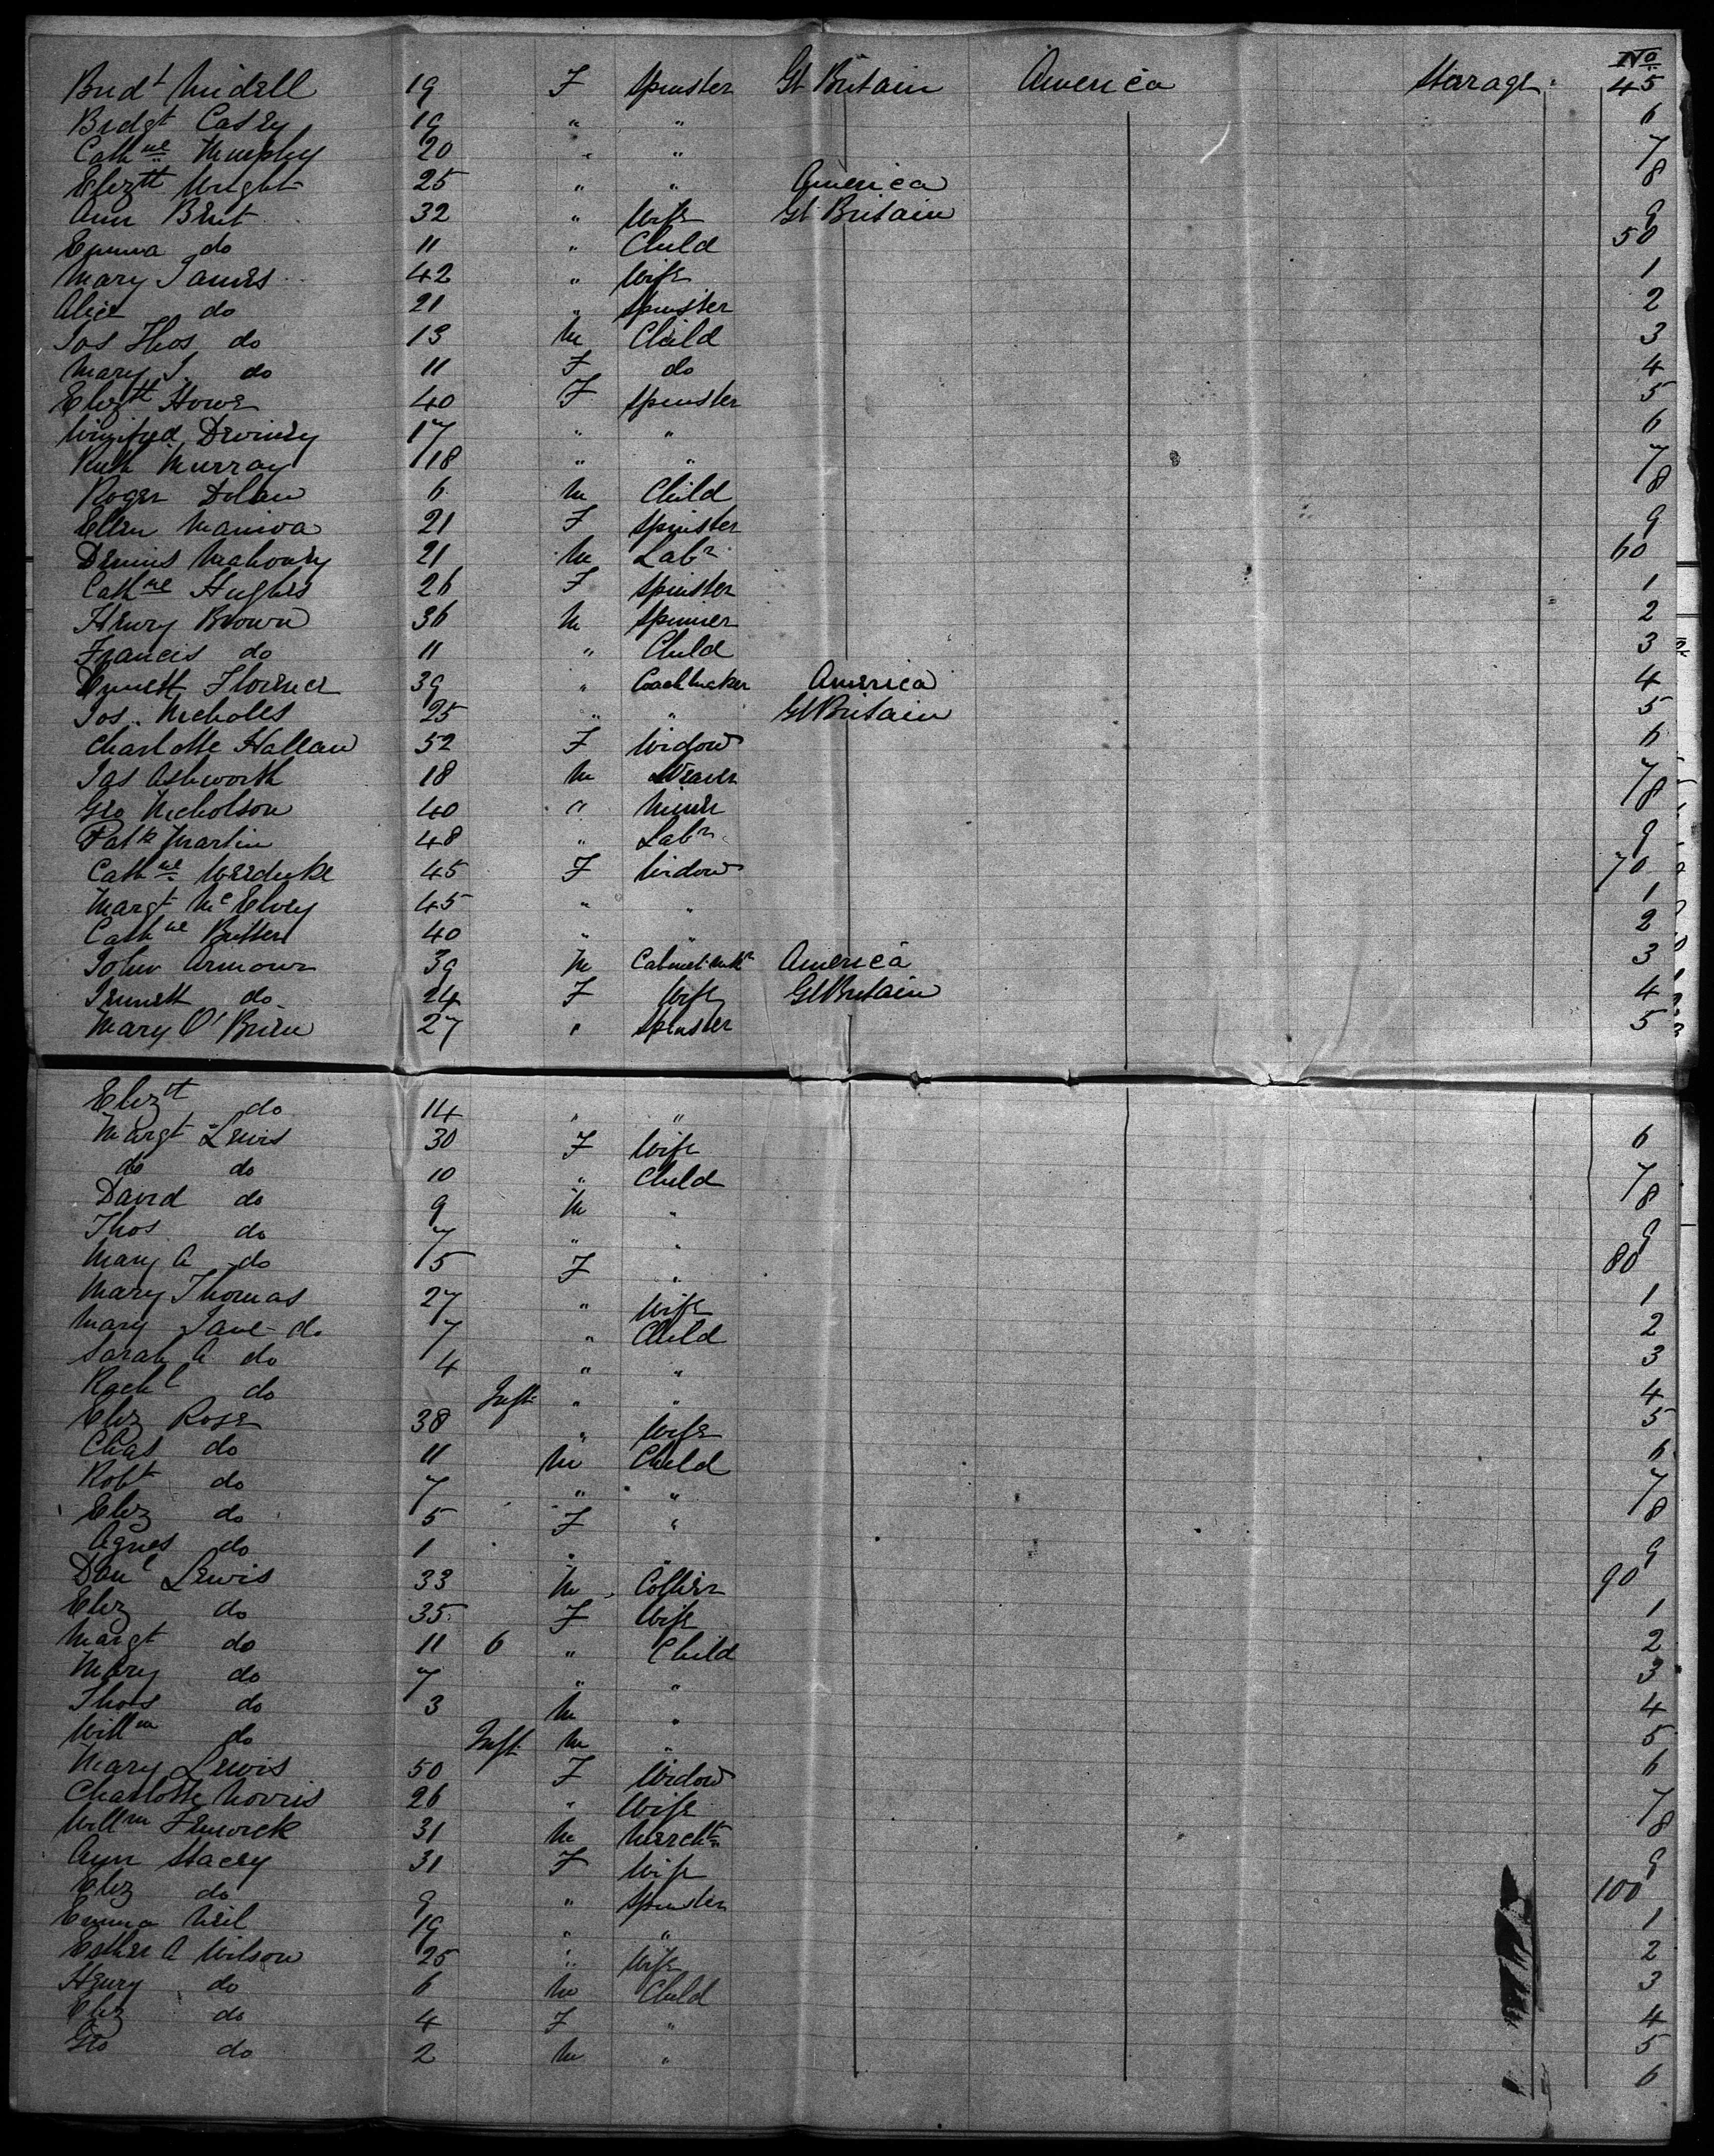 No
Bridt Midell 19 F Spinster Gt Britain America Starage 45
Bridgt Casey 19 " " 6
Cathne Murphy 20 " " 7
Elizth Wright 25 " " America 8
Ann Brut 32 " Wife Gt Britain 9
Emma do 11 " Child 50
Mary James 42 " Wife 1
Alice do 21 " Spinster 2
Jos Thos do 13 M Child 3
Mary J. do 11 F do 4
Elizth Howe 40 F Spinster 5
Winifred Deviney 17 " " 6
Ruth Murray 18 " " 7
Roger Dolan 6 M Child 8
Ellen Maniva 21 F Spinster 9
Dennis Mahoney 21 M Labr 60
Cathne Hughes 26 F Spinster 1
Henry Brown 36 M Spinner 2
Francis do 11 " Child 3
Florence 39 " Coachmaker America 4
Jos. Nicholls 25 " " Gt Britain 5
Charlotte Hallam 52 F Widow 6
Jas Ashworth 18 M Weaver 7
Geo Nicholson 40 " Miner 8
Patk Martin 48 " Labr 9
Cathne Werduke 45 F Widow 70
Margt McElvey 45 " " 1
Cathne Butler 40 " " 2
John Armour 39 M Cabinet Mkr America 3
Jennett do 24 F Wife Gt Britain 4
Mary O'Brien 27 " Spinster 5
Elizth do 14 " " 6
Margt Lewis 30 F Wife 7
do do 10 " Child 8
David do 9 M " 9
Thos do 7 " " 80
Mary A do 5 F " 1
Mary Thomas 27 " Wife 2
Mary Jane do 7 " Child 3
Sarah A do 4 " " 4
Rachl do Inft " " 5
Eliz Rose 38 " Wife 6
Chas do 11 M Child 7
Robt do 7 " " 8
Eliz do 5 F " 9
Agnes do 1 " 90
Danl Lewis 33 M Collier 1
Eliz do 35 F Wife 2
Margt do 11 6 " Child 3
Mary do 7 " " 4
Thos do 3 M " 5
Willm do Inft M " 6
Mary Lewis 50 F Widow 7
Charlotte Norris 26 " Wife 8
Willm Fenwick 31 M Mercht 9
Ann Stacey 31 F Wife 100
Eliz do 9 " Spinster 1
Emma Neil 19 " " 2
Esther A Wilson 25 " Wife 3
Henry do 6 M Child 4
Eliz do 4 F " 5
Geo do 2 M " 6